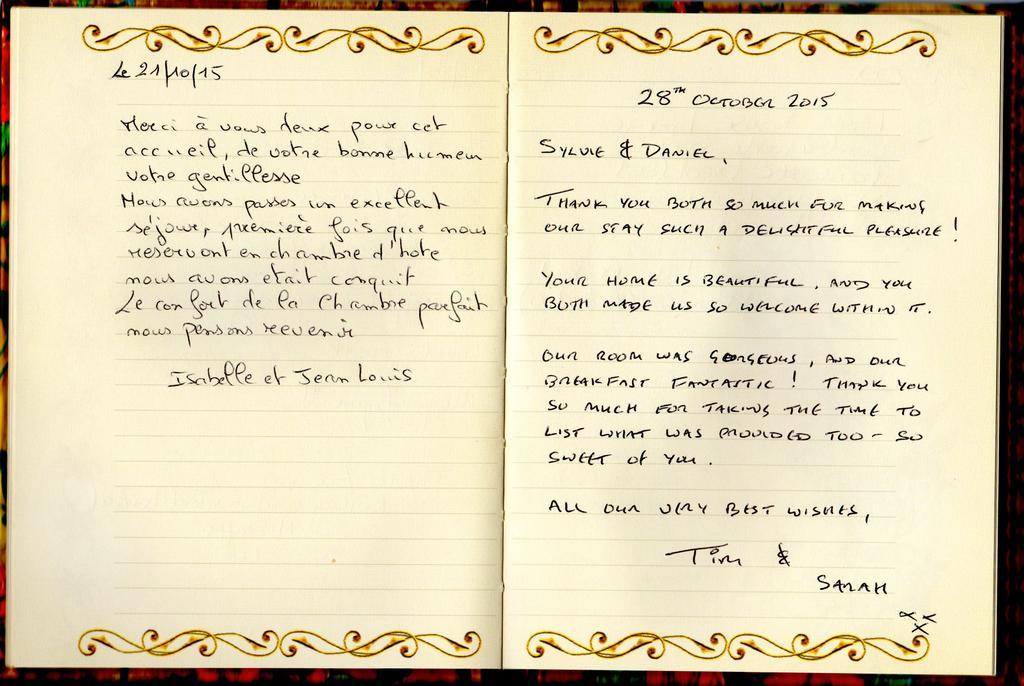 Le 21/10/15
Merci à vous deux pour cet
accueil, de votre bonne humeur
votre gentillesse
Nous avons passes un excellent
séjour, première fois que nous
reservont en chambre d'hote
nous avons etait conquit
Le confort de la Chambre parfait
nous pensons revenir
Isabelle et Jean Louis
28TH OCTOBER 2015
SYLVIE & DANIEL,
THANK YOU BOTH SO MUCH FOR MAKING
OUR STAY SUCH A DELIGHTFUL PLEASURE!
YOUR HOME IS BEAUTIFUL, AND YOU
BOTH MADE US SO WELCOME WITHIN IT.
OUR ROOM WAS GORGEOUS, AND OUR
BREAKFAST FANTASTIC! THANK YOU
SO MUCH FOR TAKING THE TIME TO
LIST WHAT WAS PROVIDED TOO - SO
SWEET OF YOU.
ALL OUR VERY BEST WISHES,
Tim &
SARAH
xxx